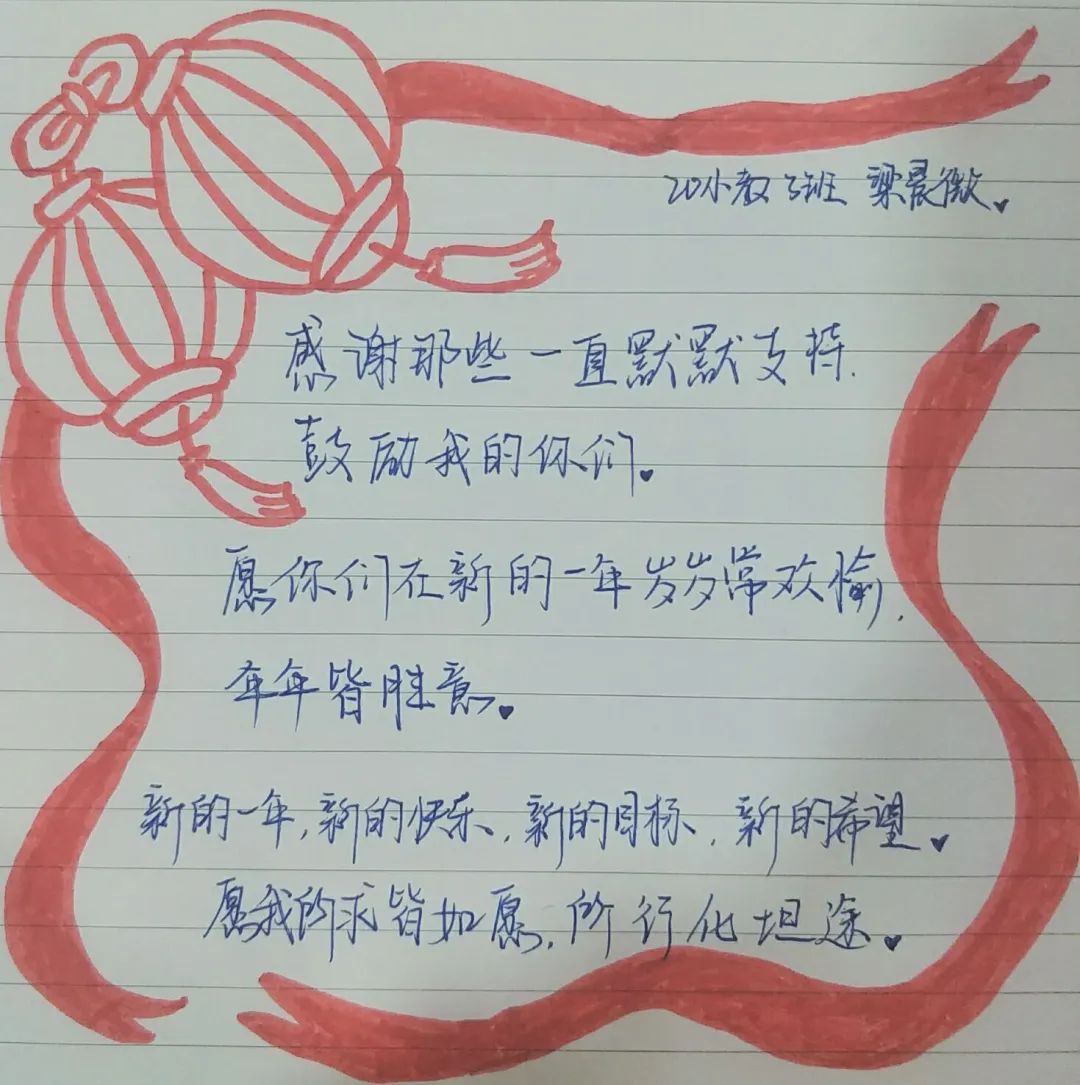 20小教3班 梁晨微。
感谢那些一直默默支持.
鼓励我的你们。
愿你们在新的一年岁岁常欢愉,
年年皆胜意。
新的一年,新的快乐,新的目标,新的希望。
愿我所求皆如愿,所行化坦途。